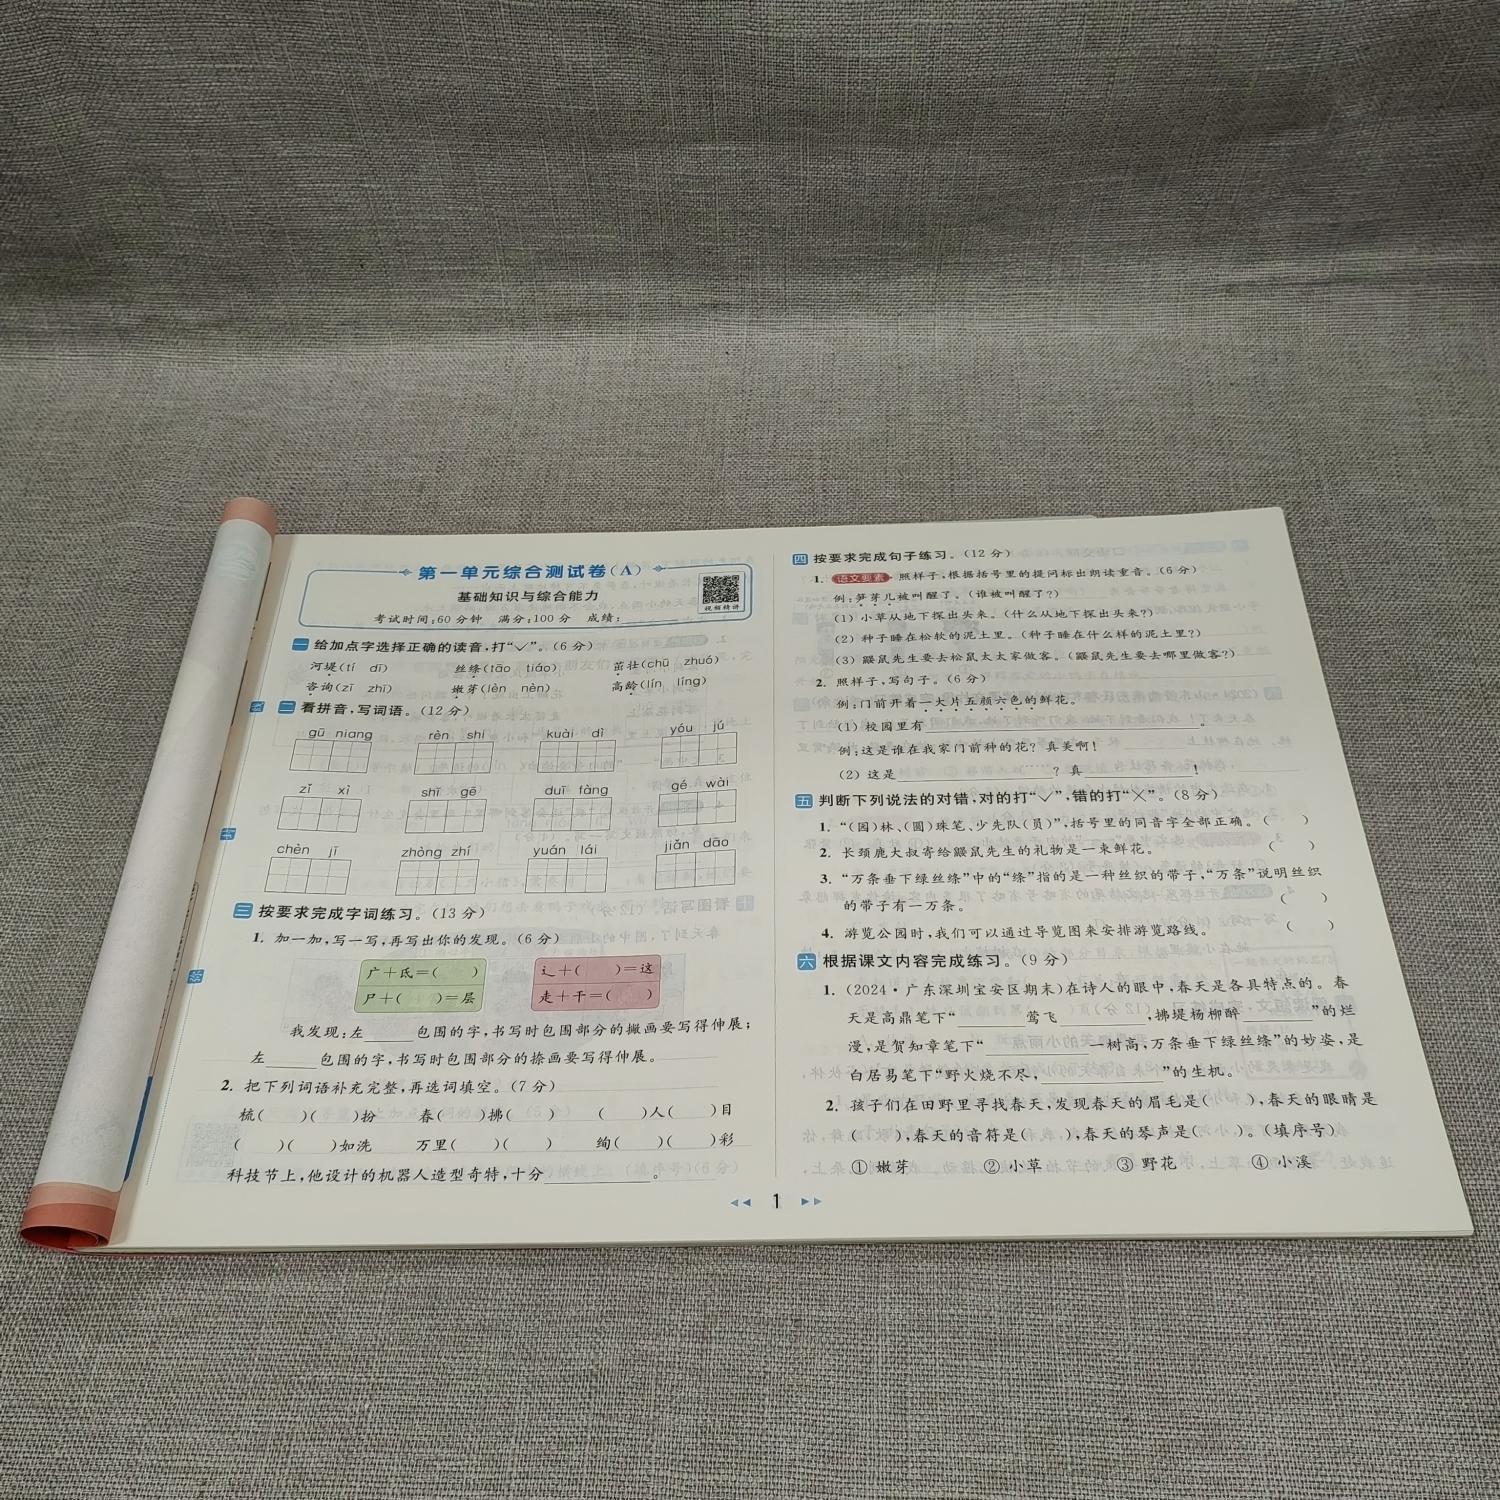 第一单元综合测试卷(A)
基础知识与综合能力
考试时间:60分钟 满分:100分 成绩:
视频精讲
一 给加点字选择正确的读音,打“✓”。(6分)
河堤(tí dī) 丝绦(tāo tiáo) 茁壮(chū zhuó)
咨询(zī zhī) 嫩芽(lèn nèn) 高龄(lín líng)
二 看拼音,写词语。(12分)
gū niang rèn shi kuài dì yóu jú
zǐ xì shī gē duī fàng gé wài
chèn jī zhòng zhí yuán lái jiǎn dāo
三 按要求完成字词练习。(13分)
1. 加一加,写一写,再写出你的发现。(6分)
广+氐=( ) 辶+( )=这
尸+( )=层 走+干=( )
我发现:左____包围的字,书写时包围部分的撇画要写得伸展;
左____包围的字,书写时包围部分的捺画要写得伸展。
2. 把下列词语补充完整,再选词填空。(7分)
梳( )( )扮 春( )拂( ) ( )人( )目
( )( )如洗 万里( )( ) 绚( )( )彩
科技节上,他设计的机器人造型奇特,十分________。
1
四 按要求完成句子练习。(12分)
1. 语文要素·照样子,根据括号里的提问标出朗读重音。(6分)
例:笋芽儿被叫醒了。(谁被叫醒了?)
(1)小草从地下探出头来。(什么从地下探出头来?)
(2)种子睡在松软的泥土里。(种子睡在什么样的泥土里?)
(3)鼹鼠先生要去松鼠太太家做客。(鼹鼠先生要去哪里做客?)
2. 照样子,写句子。(6分)
例:门前开着一大片五颜六色的鲜花。
(1)校园里有________________。
例:这是谁在我家门前种的花?真美啊!
(2)这是____________?真________!
五 判断下列说法的对错,对的打“✓”,错的打“×”。(8分)
1. “(园)林、(圆)珠笔、少先队(员)”,括号里的同音字全部正确。( )
2. 长颈鹿大叔寄给鼹鼠先生的礼物是一束鲜花。 ( )
3. “万条垂下绿丝绦”中的“绦”指的是一种丝织的带子,“万条”说明丝织
的带子有一万条。 ( )
4. 游览公园时,我们可以通过导览图来安排游览路线。 ( )
六 根据课文内容完成练习。(9分)
1. (2024·广东深圳宝安区期末)在诗人的眼中,春天是各具特点的。春
天是高鼎笔下“______莺飞________,拂堤杨柳醉______”的烂
漫,是贺知章笔下“________一树高,万条垂下绿丝绦”的妙姿,是
白居易笔下“野火烧不尽,__________”的生机。
2. 孩子们在田野里寻找春天,发现春天的眉毛是( ),春天的眼睛是
( ),春天的音符是( ),春天的琴声是( )。(填序号)
①嫩芽 ②小草 ③野花 ④小溪